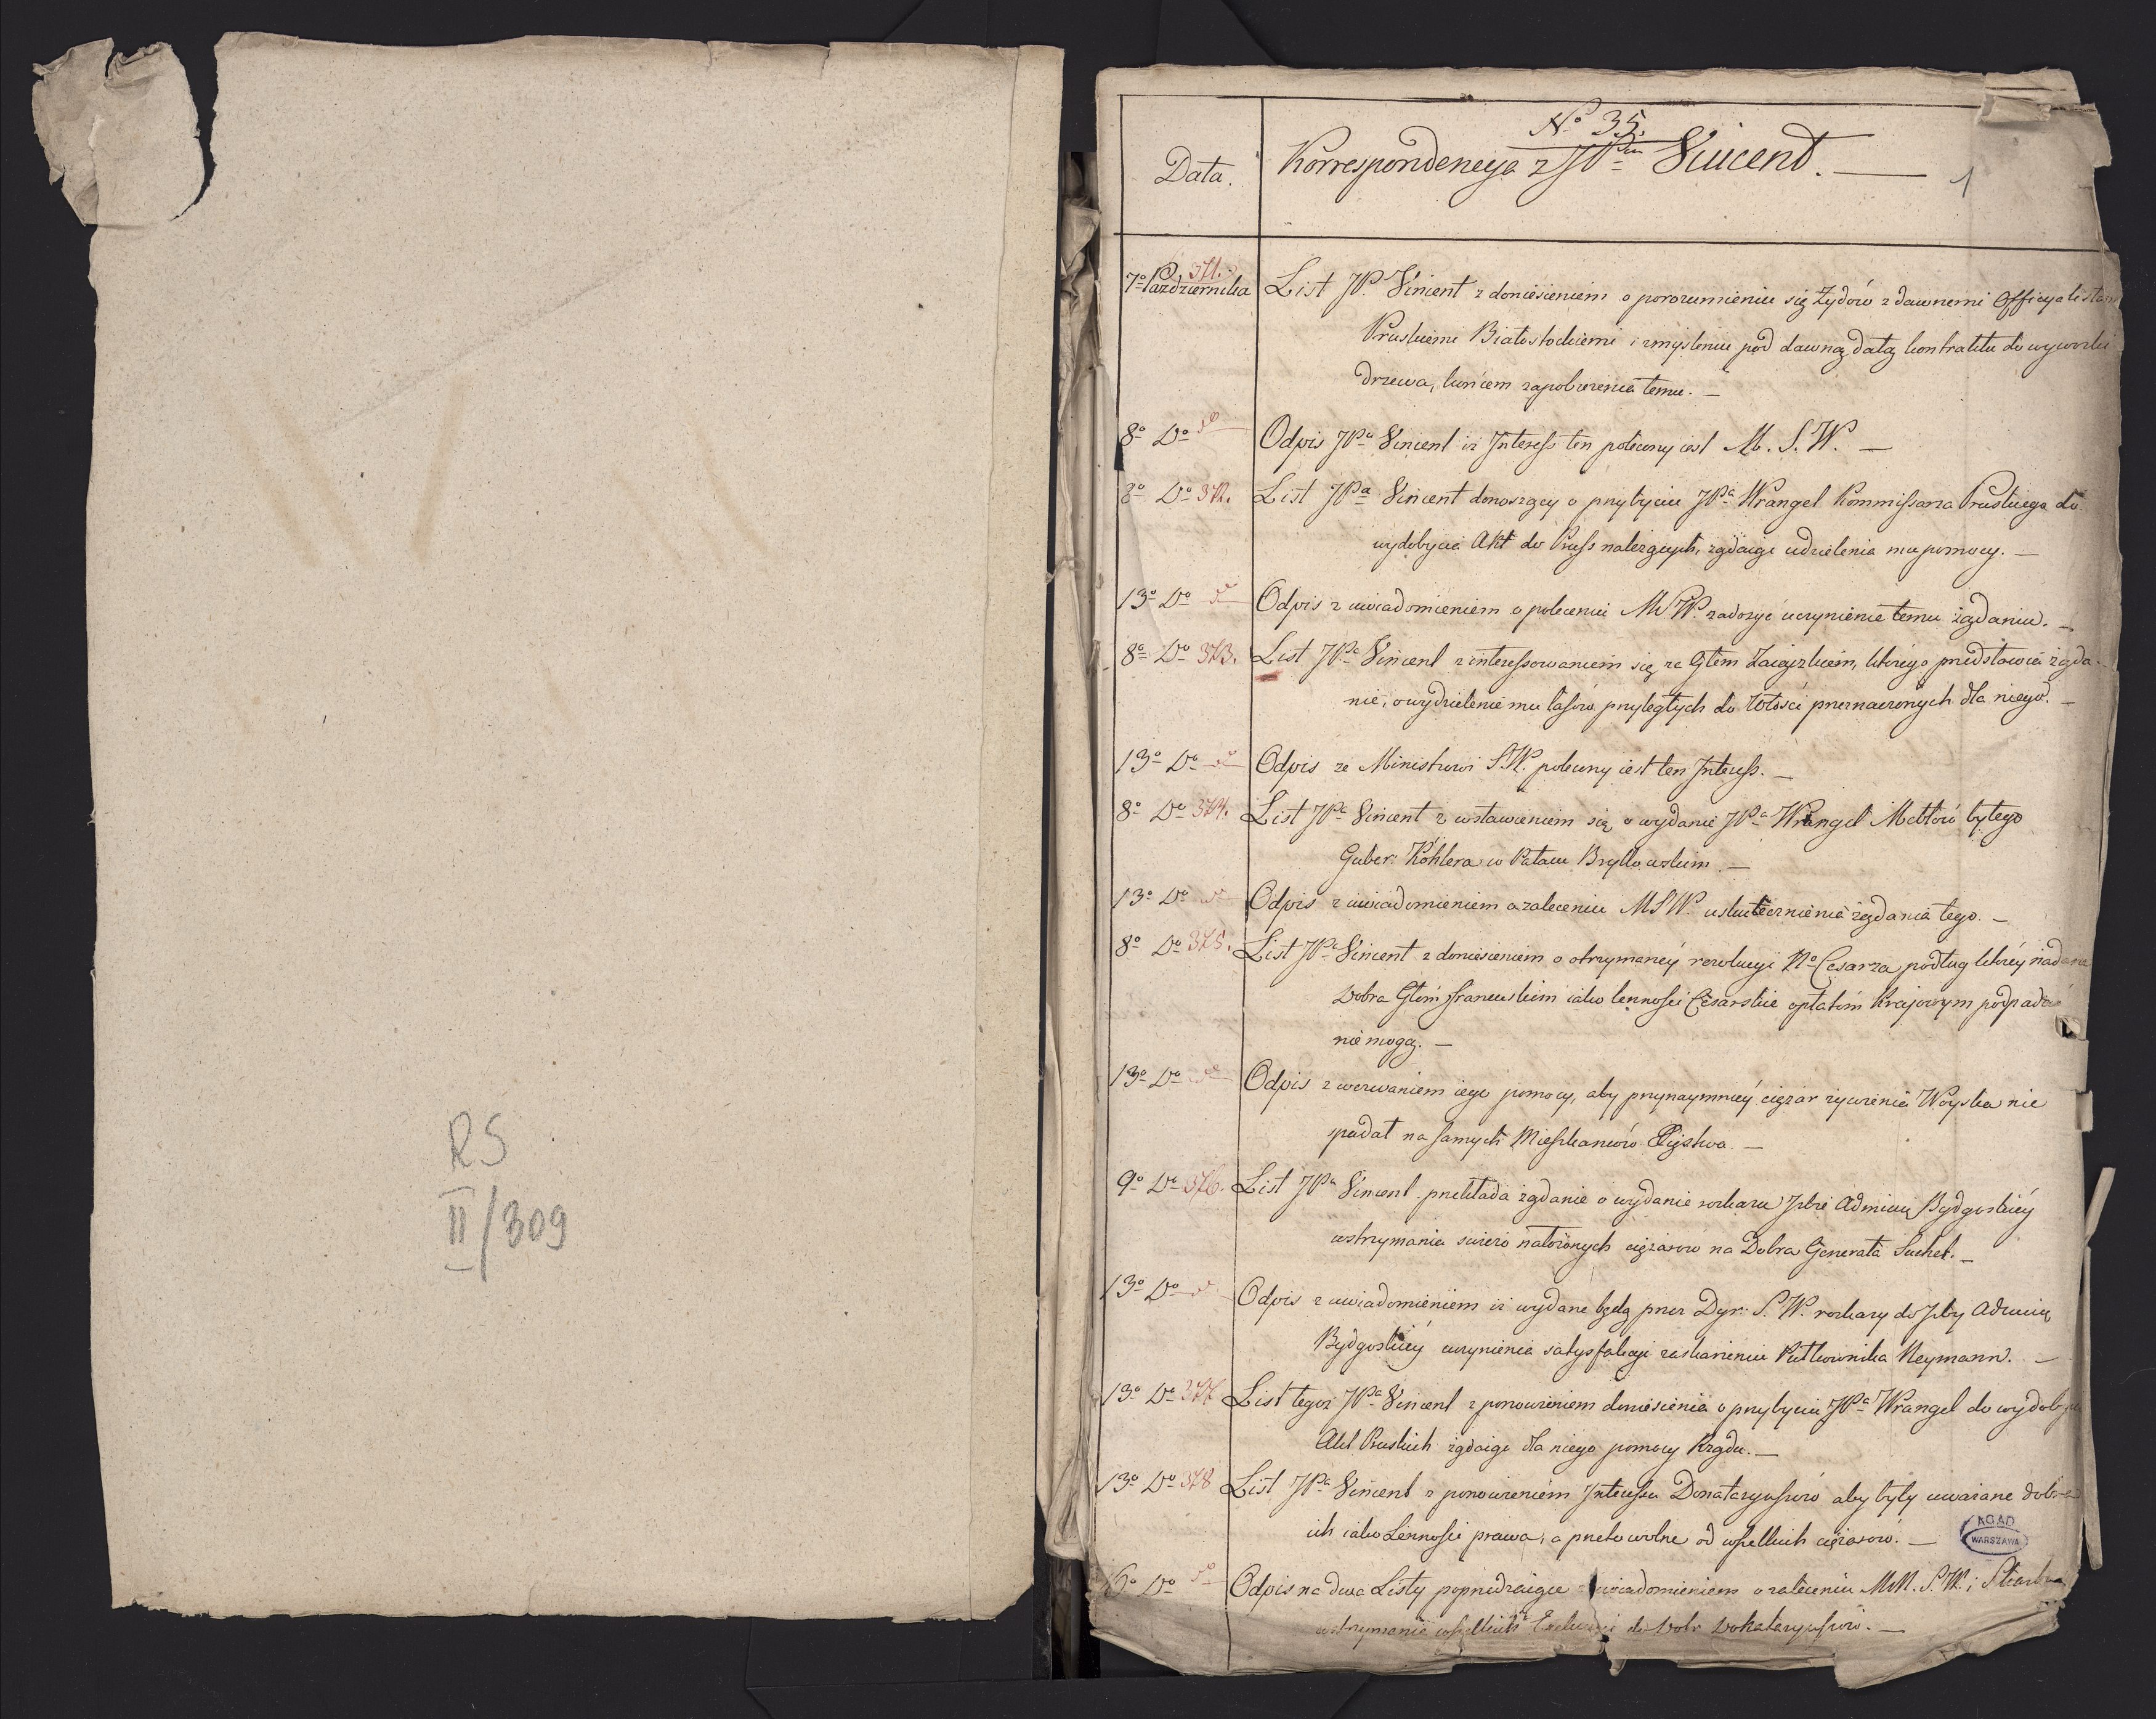 RS
II/309
No 35.
Data.
Korrespondencya z JPem Vincent.
1
371.
7o Października List JP. Vincent z doniesieniem o porozumieniu się Żydów z dawnemi Officyalistami
Pruskiemi Białostockiemi i zmyśleniu pod dawną datą kontraktu do wywozki
drzewa, końcem zapobieżenia temu. —
8o Do do Odpis JPa Vincent iż Interess ten polecony iest M. S. W. —
8o Do 372. List JPa Vincent donoszący o przybyciu JPa Wrangel Kommissarza Pruskiego do
wydobycia Akt do Pruss należących, żądaiąc udzielenia mu pomocy. —
13o Do do Odpis z uwiadomieniem o poleceniu MSW. zadosyć uczynienie temu żądaniu. —
8o Do 373. List JPa Vincent z interessowaniem się za Głem Zaiączkiem, którego przedstawia żąda-
nie, o wydzielenie mu lasów przyległych do Włości przeznaczonych dla niego. —
13o Do do Odpis że Ministrowi S.W. polecony iest ten Interess. —
8o Do 374. List JPa Vincent z wstawieniem się o wydanie JPa Wrangel Meblów byłego
Guber: Köhlera w Pałacu Bryllowskim —
13o Do do Odpis z uwiadomieniem o zaleceniu MSW. uskutecznienie żądania tego. —
8o Do 375. List JPa Vincent z doniesieniem o otrzymanéy rezolucyi No Cesarza podług któréy nadane
Dobra Głom francuskim iako lenności Cesarskie opłatom Krajowym podpadać
nie mogą. —
13o Do do Odpis z wezwaniem iego pomocy, aby przynaymniéy ciężar żywienia Woyska nie
spadał na samych Mieszkańców Xięstwa. —
9o Do 376. List JPa Vincent przekłada żądanie o wydanie rozkazu Izbie Adminiq Bydgoskiéy
wstrzymania świeżo nałożonych ciężarów na Dobra Generała Suchet. —
13o Do do Odpis z uwiadomieniem iż wydane będą przez Dyr: S. W. rozkazy do Izby Adminiq
Bydgoskiéy uczynienia satysfakcyi zaskarżeniu Pułkownika Neymann. —
13o Do 377 List tegoż JPa Vincent z ponowieniem doniesienia o przybyciu JPa Wrangel do wydobycia
Akt Pruskich żądaiąc dla niego pomocy Rządu. —
13o Do 378 List JPa Vincent z ponowieniem Interessu Donataryuszów aby były uważane dobra
ich iako Lenności prawa, a przeto wolne od wszelkich ciężarów. —
AGAD
WARSZAWA
Do do Odpis na dwa Listy poprzedzaiące z uwiadomieniem o zaleceniu MM. S.W. i Skarbu
wstrzymanie wszelkich Exekucyi do Dobr Donataryuszów. —